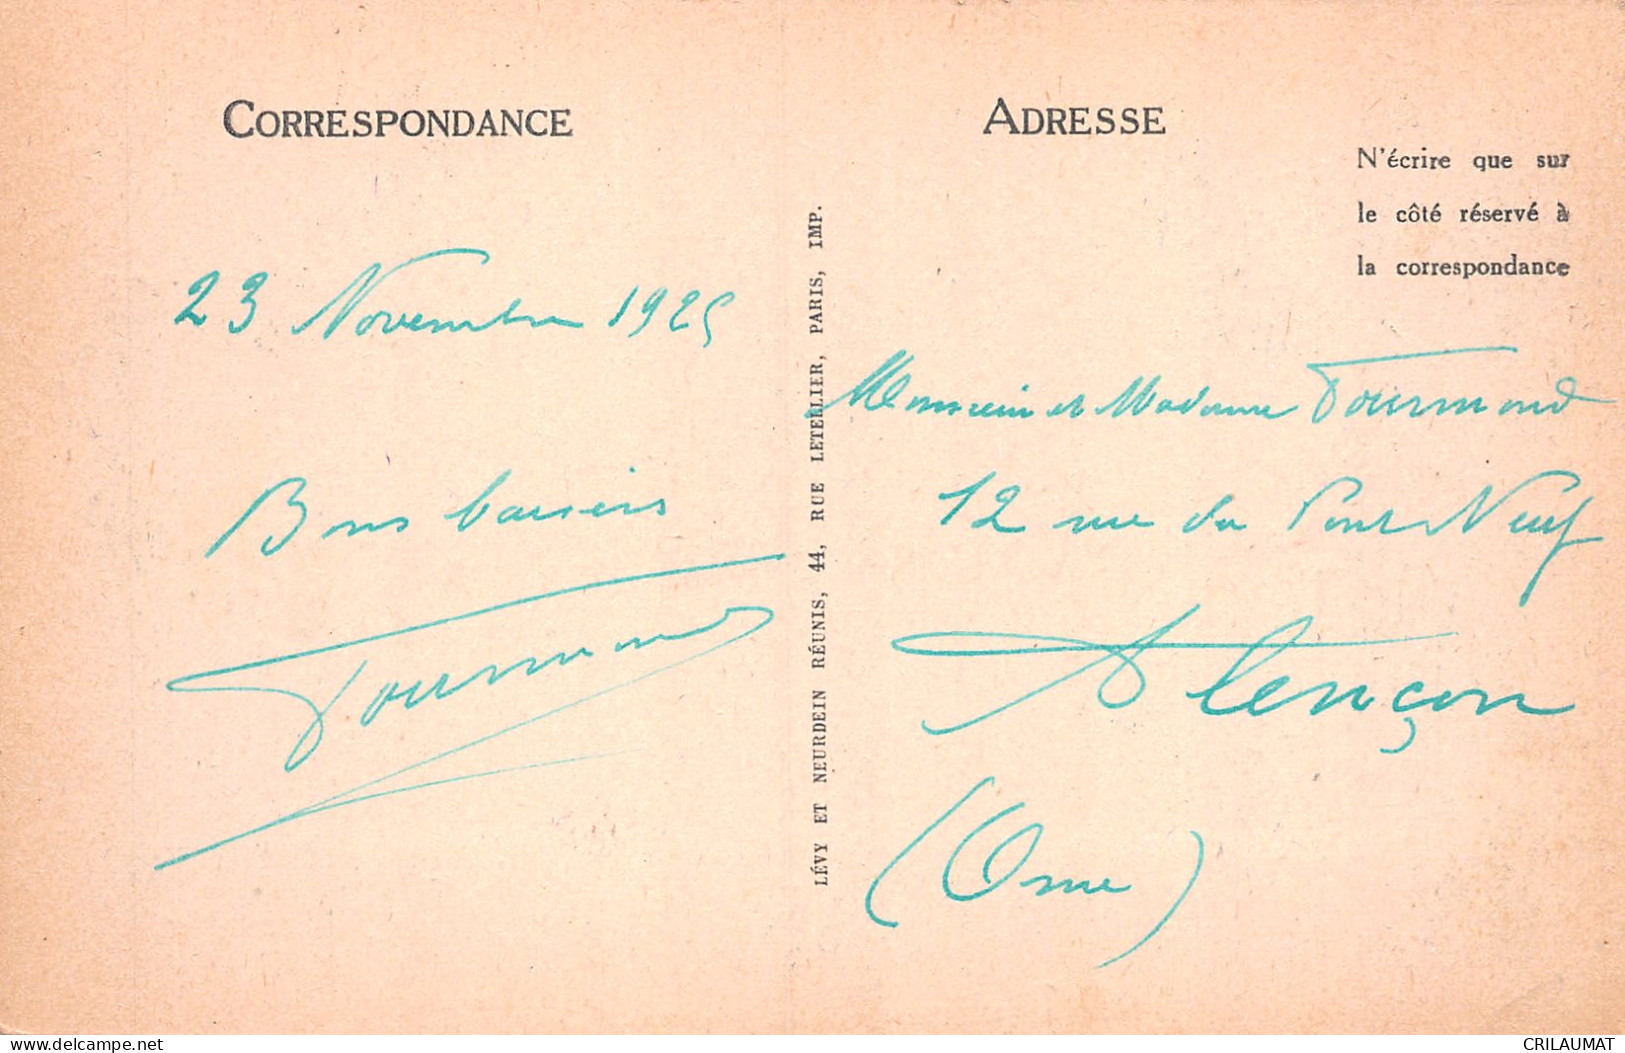 CORRESPONDANCE
23 Novembre 1925
Bons baisers
Fourmond
LÉVY ET NEURDEIN RÉUNIS, 44, RUE LETELLIER, PARIS, IMP.
ADRESSE
N'écrire que sur
le côté réservé à
la correspondance
Monsieur et Madame Fourmond
12 rue du Pont Neuf
Alençon
(Orne)
© Delcampe.net
CRILAUMAT